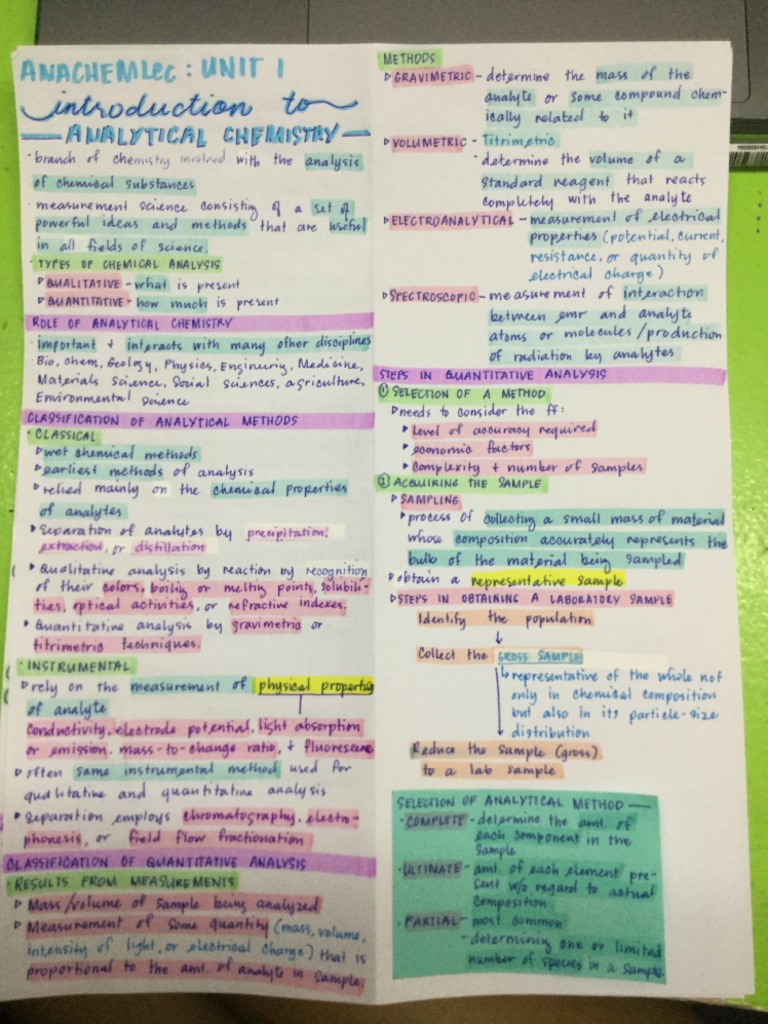 ANACHEMLEC: UNIT 1
introduction to
ANALYTICAL CHEMISTRY
· branch of chemistry involved with the analysis
of chemical substances
· measurement science consisting of a set of
powerful ideas and methods that are useful
in all fields of science.
· TYPES OF CHEMICAL ANALYSIS
▹ QUALITATIVE - what is present
▹ QUANTITATIVE - how much is present
ROLE OF ANALYTICAL CHEMISTRY
· important + interacts with many other disciplines
Bio, Chem, Geology, Physics, Engineering, Medicine,
Materials Science, Social Sciences, agriculture,
Environmental Science
CLASSIFICATION OF ANALYTICAL METHODS
· CLASSICAL
▹ wet chemical methods
▹ earliest methods of analysis
▹ relied mainly on the chemical properties
of analytes
▹ Separation of analytes by precipitation,
extraction, or distillation
▹ Qualitative analysis by reaction by recognition
of their colors, boiling or melting points, solubili-
ties, optical activities, or refractive indexes.
▹ Quantitative analysis by gravimetric or
titrimetric techniques.
· INSTRUMENTAL
▹ rely on the measurement of physical properties
of analyte
conductivity, electrode potential, light absorption
or emission, mass-to-change ratio, + fluorescence
▹ often same instrumental method used for
qualitative and quantitative analysis
▹ Separation employs chromatography, electro-
phonesis, or field flow fractionation
CLASSIFICATION OF QUANTITATIVE ANALYSIS
· RESULTS FROM MEASUREMENTS
▹ Mass/volume of sample being analyzed
▹ Measurement of some quantity (mass, volume,
intensity of light, or electrical charge) that is
proportional to the amt. of analyte in sample.
METHODS
▹ GRAVIMETRIC - determine the mass of the
analyte or some compound chem-
ically related to it
▹ VOLUMETRIC - Titrimetric
· determine the volume of a
standard reagent that reacts
completely with the analyte
▹ ELECTROANALYTICAL - measurement of electrical
properties (potential, current,
resistance, or quantity of
electrical charge)
▹ SPECTROSCOPIC - measurement of interaction
between emr and analyte
atoms or molecules/production
of radiation by analytes
STEPS IN QUANTITATIVE ANALYSIS
① SELECTION OF A METHOD
▹ needs to consider the ff:
▸ Level of accuracy required
▸ economic factors
▸ complexity + number of samples
② ACQUIRING THE SAMPLE
▹ SAMPLING
▸ process of collecting a small mass of material
whose composition accurately represents the
bulk of the material being sampled
▹ obtain a representative sample
▹ STEPS IN OBTAINING A LABORATORY SAMPLE
Identify the population
↓
Collect the GROSS SAMPLE
↳ representative of the whole not
only in chemical composition
but also in its particle-size
distribution
Reduce the Sample (gross)
to a lab sample
SELECTION OF ANALYTICAL METHOD —
· COMPLETE - determine the amt. of
each component in the
sample
· ULTIMATE - amt. of each element pre-
sent w/o regard to actual
composition
· PARTIAL - most common
- determining one or limited
number of species in a sample